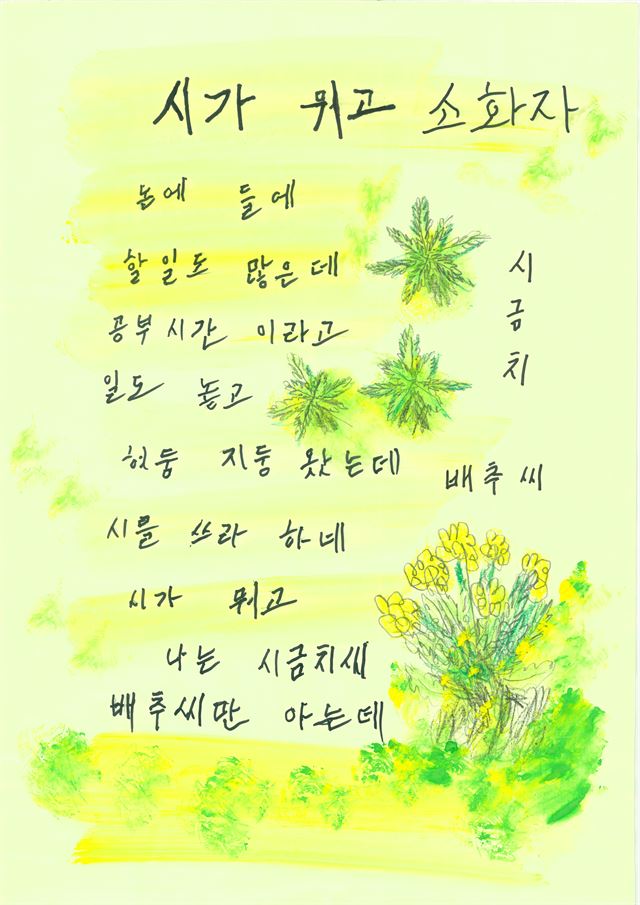 시가 뭐고 소화자
논에 들에
할일도 많은데
공부시간 이라고
일도 놓고
헛둥 지둥 왔는데
시를 쓰라 하네
시가 뭐고
나는 시금치씨
배추씨만 아는데
시금치
배추씨